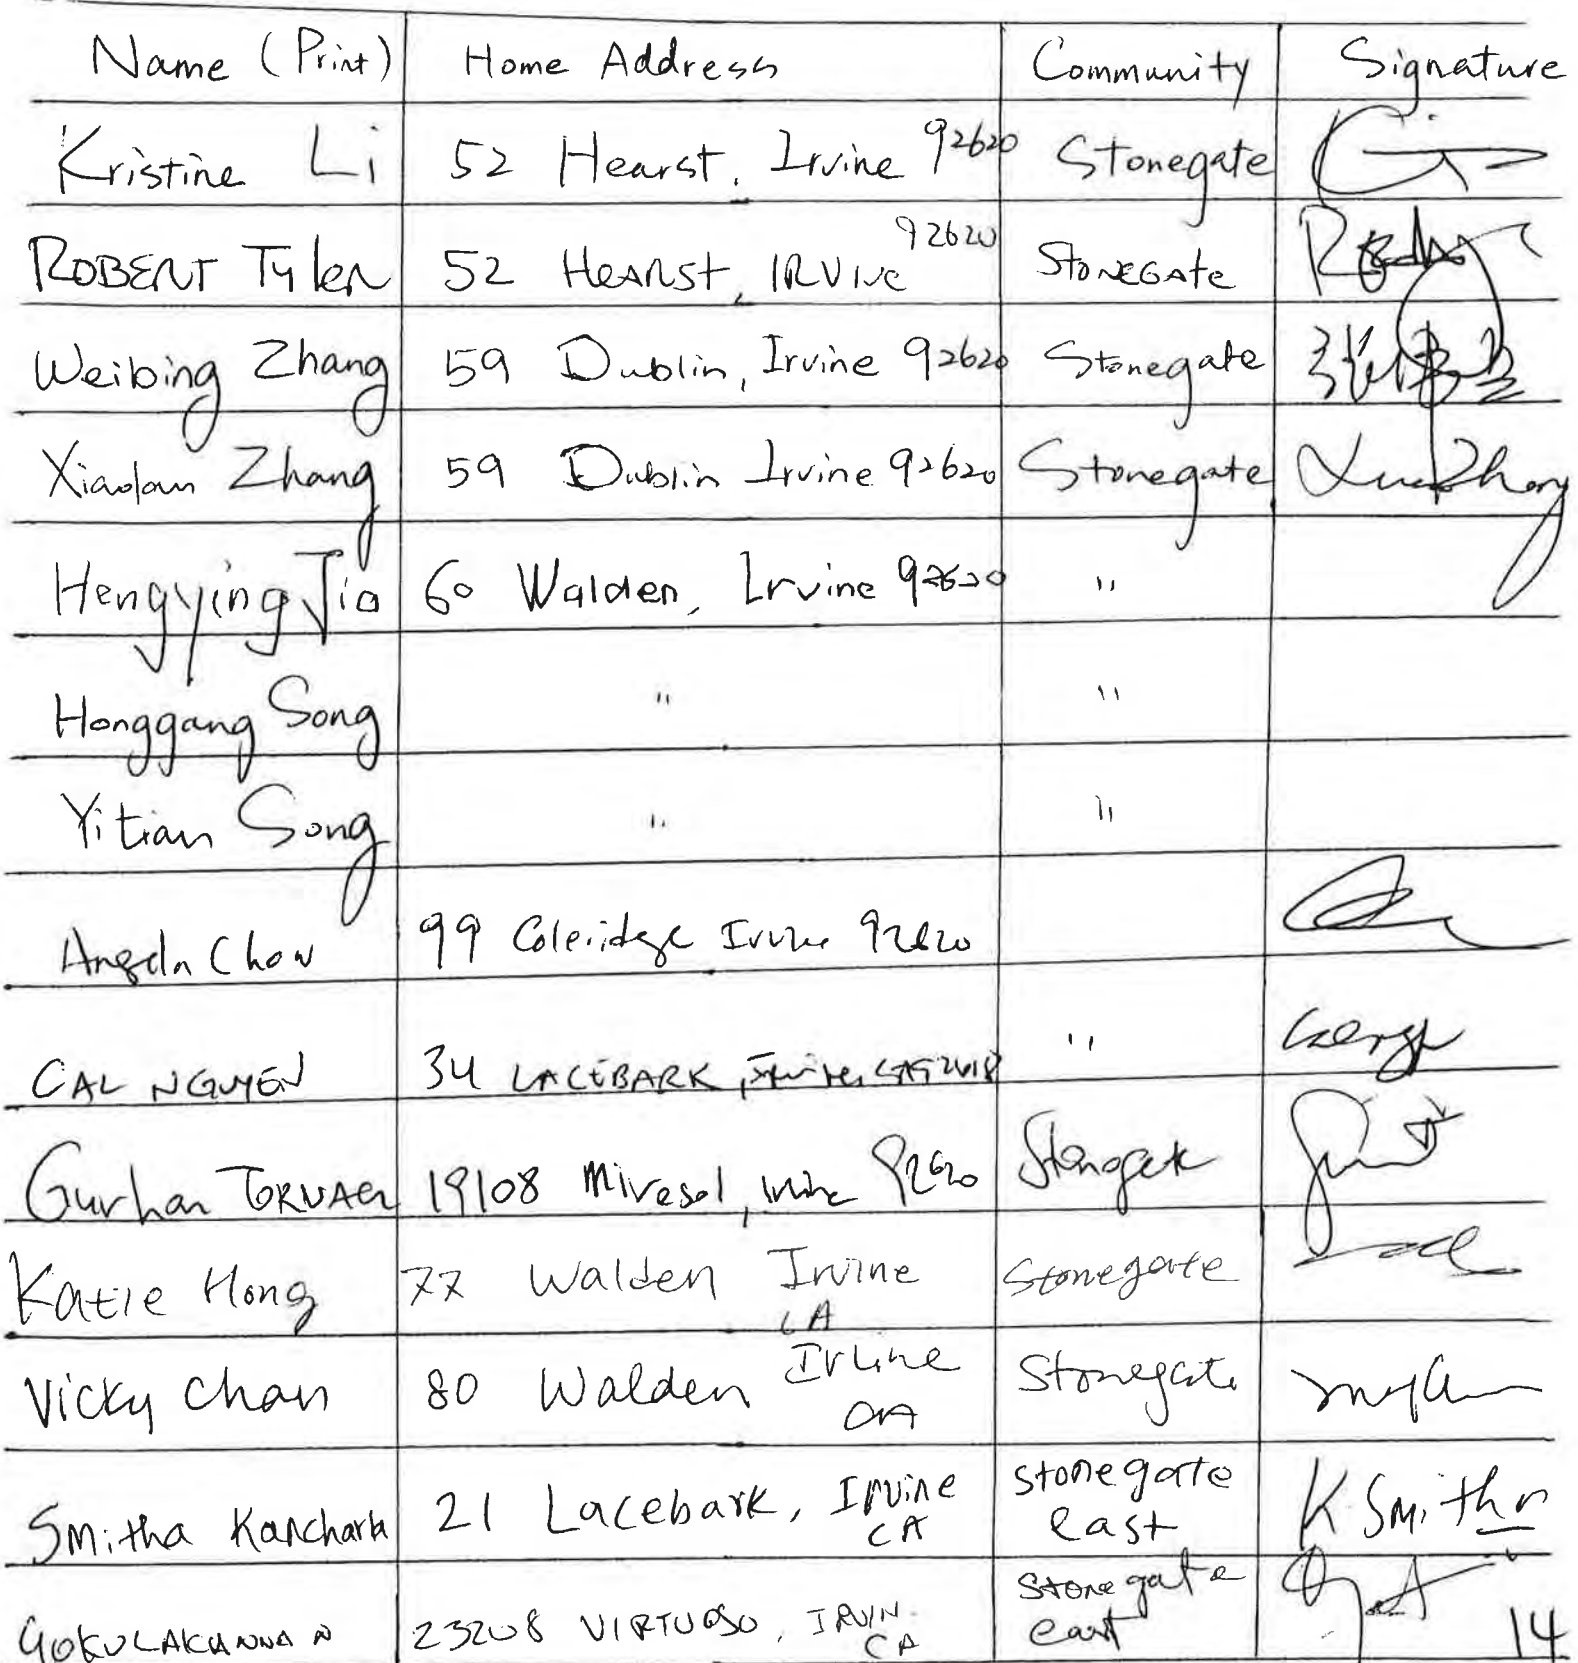 Name (Print) Home Address Community Signature
Kristine Li 52 Hearst, Irvine 92620 Stonegate
ROBERT Tyler 52 Hearst, IRVINE 92620 Stonegate
Weibing Zhang 59 Dublin, Irvine 92620 Stonegate
Xiaolan Zhang 59 Dublin Irvine 92620 Stonegate Zhang
Hengying Jia 60 Walden, Irvine 92620 "
Honggang Song " "
Yitian Song " "
Angela Chow 99 Coleridge Irvine 92620
CAL NGUYEN 34 LACEBARK, Irvine, CA 92618 "
Gurhan 19108 Miresol, Irvine 92620 Stonegate
Katie Hong 77 Walden Irvine CA Stonegate
Vicky Chan 80 Walden Irvine CA Stonegate
Smitha Kancharla 21 Lacebark, Irvine CA Stonegate east K Smitha
GOKULAKANNAN 23208 VIRTUOSO, IRVIN CA Stonegate east
14